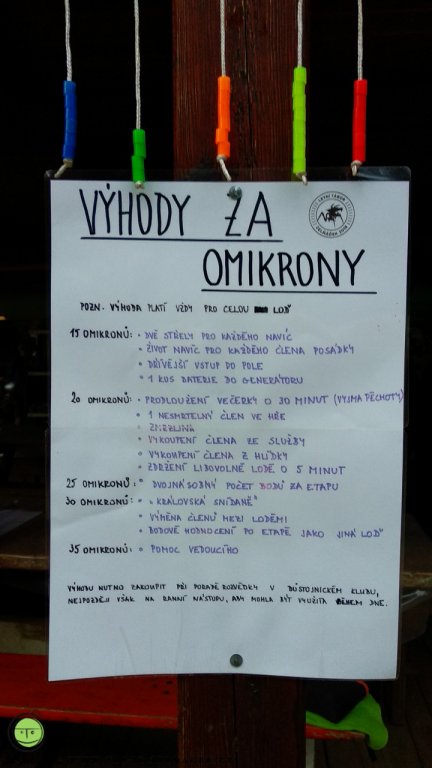 VÝHODY ZA
OMIKRONY
POZN. VÝHODA PLATÍ VŽDY PRO CELOU LOĎ
15 OMIKRONŮ: • DVĚ STŘELY PRO KAŽDÉHO NAVÍC
• ŽIVOT NAVÍC PRO KAŽDÉHO ČLENA POSÁDKY
• DŘÍVĚJŠÍ VSTUP DO POLE
• 1 KUS BATERIE DO GENERÁTORU
20 OMIKRONŮ: • PRODLOUŽENÍ VEČERKY O 30 MINUT (VYJMA PĚCHOTY)
• 1 NESMRTELNÝ ČLEN VE HŘE
• ZMRZLINA
• VYKOUPENÍ ČLENA ZE SLUŽBY
• VYKOUPENÍ ČLENA Z HLÍDKY
• ZDRŽENÍ LIBOVOLNÉ LODĚ O 5 MINUT
25 OMIKRONŮ: • DVOJNÁSOBNÝ POČET BODŮ ZA ETAPU
30 OMIKRONŮ: • "KRÁLOVSKÁ SNÍDANĚ"
• VÝMĚNA ČLENŮ MEZI LODĚMI
• BODOVÉ HODNOCENÍ PO ETAPĚ JAKO "JINÁ LOĎ"
35 OMIKRONŮ: • POMOC VEDOUCÍHO
VÝHODU NUTNO ZAKOUPIT PŘI PORADĚ ROZVĚDKY V DŮSTOJNICKÉM KLUBU,
NEJPOZDĚJI VŠAK NA RANNÍ NÁSTUPU, ABY MOHLA BÝT VYUŽITA BĚHEM DNE.